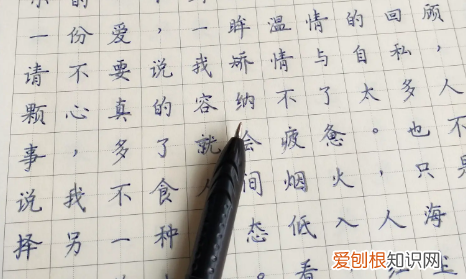 的
一份爱，一眸温情的回顾
请不要说我矫情与自私，
颗心真的容纳不了太多人
事，多了就会疲惫。也不
说我不食人间烟火，只是
择另一种态低入人海
的。看上
爱刨根知识网
www.baogen.com